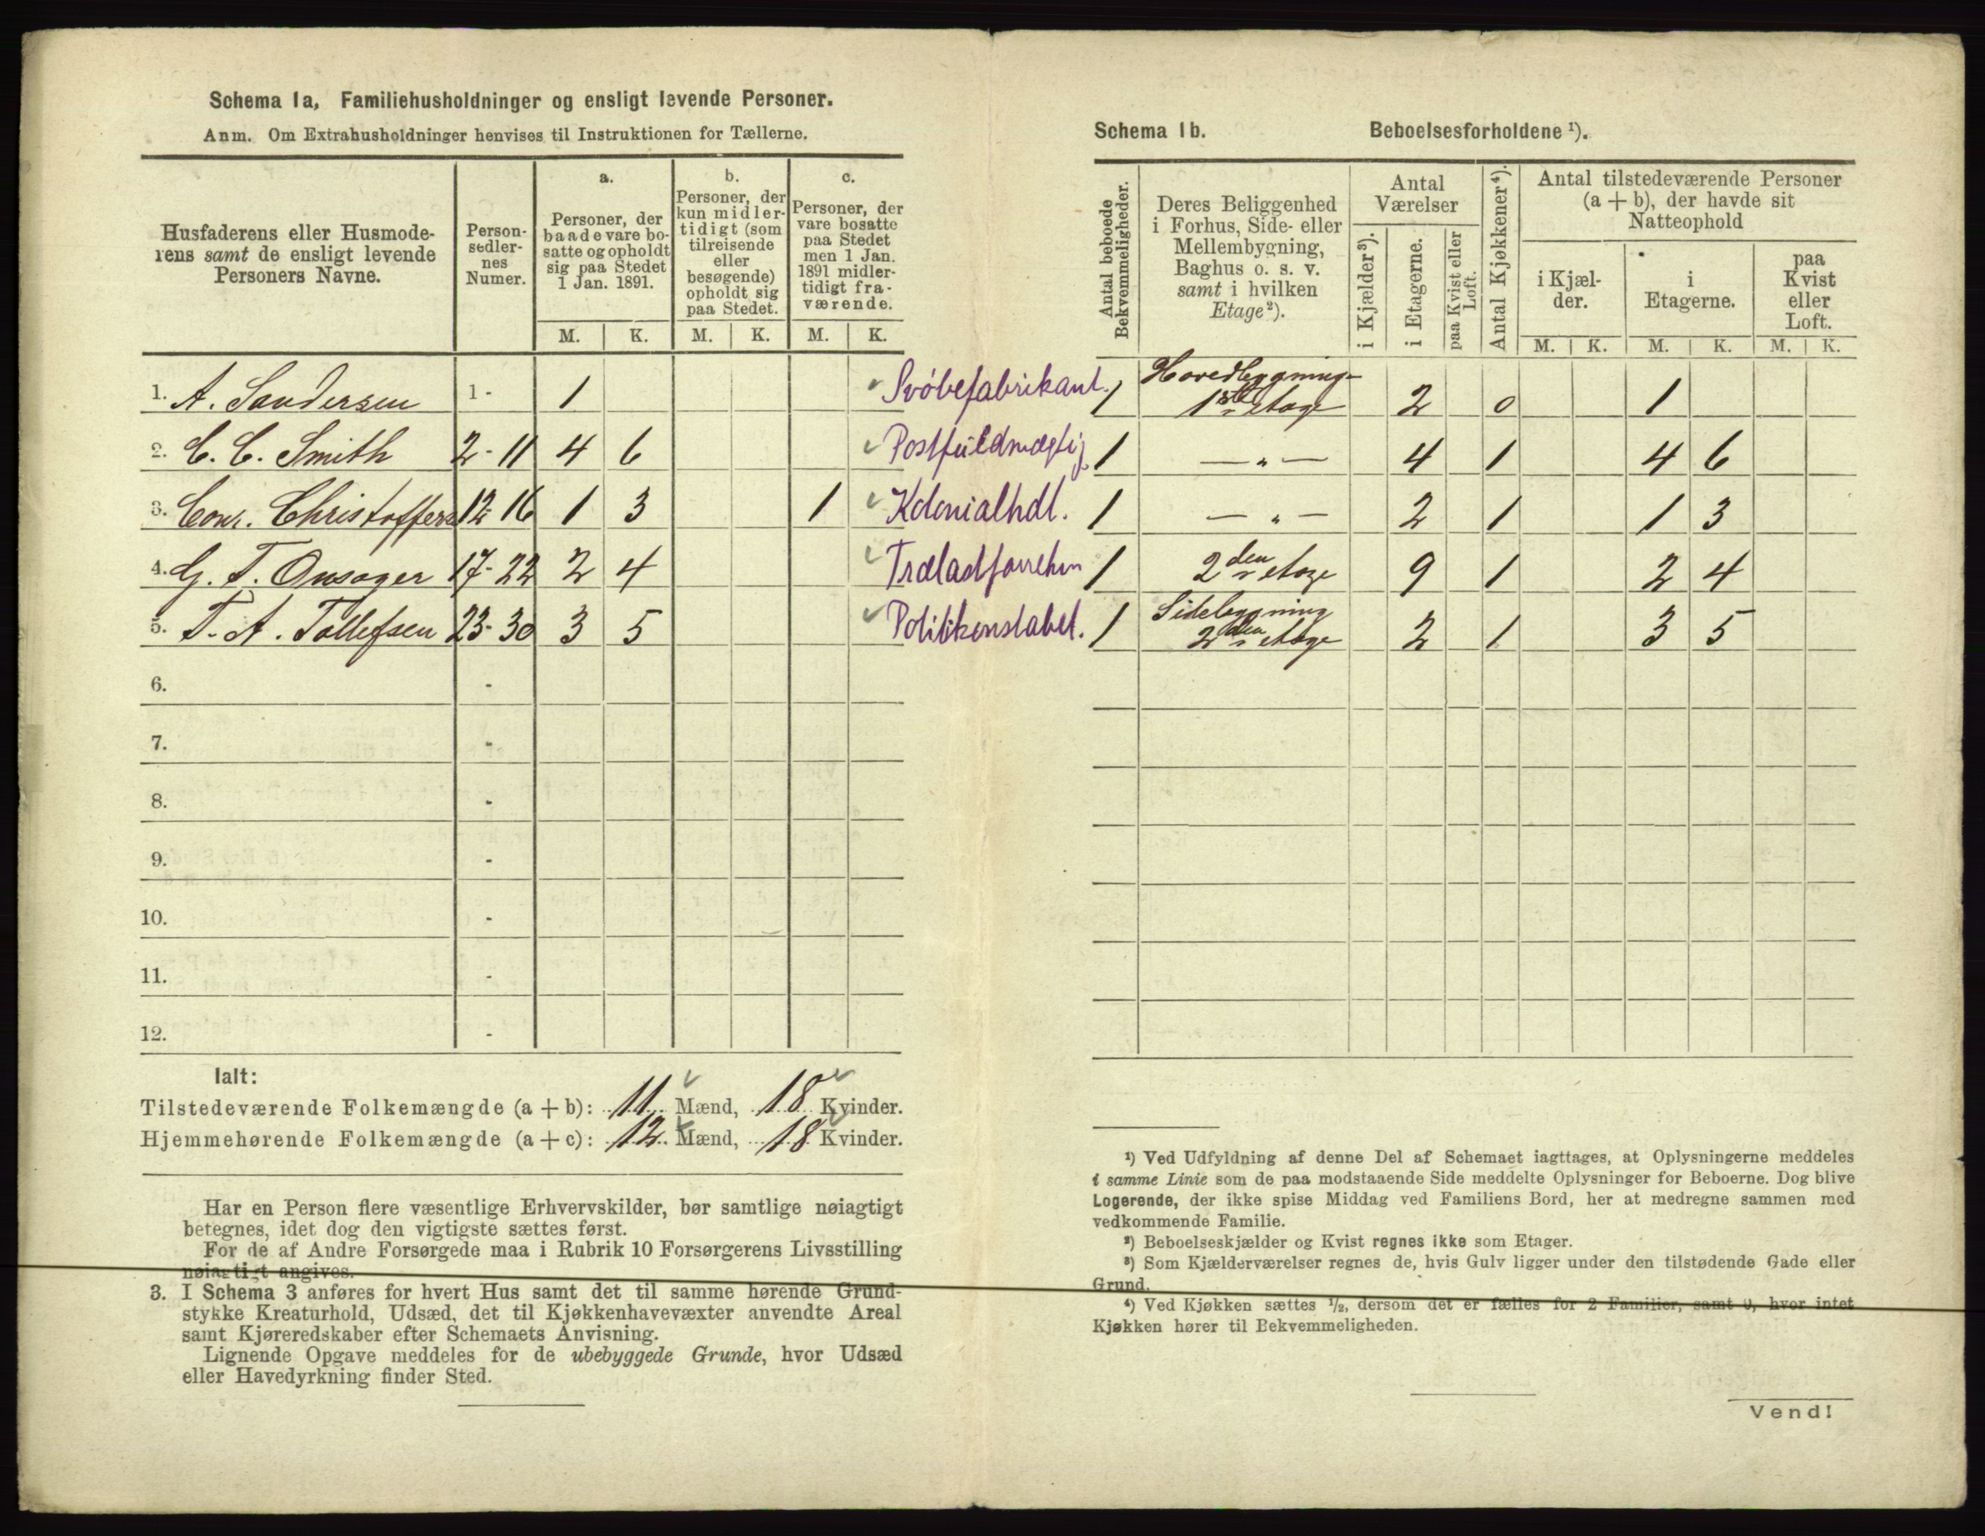 Schema 1a, Familiehusholdninger og ensligt levende Personer.
Anm. Om Extrahusholdninger henvises til Instruktionen for Tællerne.
Husfaderens eller Husmode-
rens samt de ensligt levende
Personers Navne.
Person-
sedler-
nes
Numer.
a.
Personer, der
baade vare bo-
satte og opholdt
sig paa Stedet
1 Jan. 1891.
b.
Personer, der
kun midler-
tidigt (som
tilreisende
eller
besøgende)
opholdt sig
paa Stedet.
c.
Personer, der
vare bosatte
paa Stedet
men 1 Jan.
1891 midler-
tidigt fra-
værende.
M. K. M. K. M. K.
1. A. Sandersen 1- 1
2. C. C. Smith 2-11 4 6
3. Conr. Christoffers 12-16 1 3 1
4. G. T. Onsager 17-22 2 4
5. T. A. Tollefsen 23-30 3 5
6. -
7. -
8. -
9. -
10. -
11. -
12. -
Ialt:
Tilstedeværende Folkemængde (a + b): 11 Mænd, 18 Kvinder.
Hjemmehørende Folkemængde (a + c): 12 Mænd, 18 Kvinder.
Har en Person flere væsentlige Erhvervskilder, bør samtlige nøiagtigt
betegnes, idet dog den vigtigste sættes først.
For de af Andre Forsørgede maa i Rubrik 10 Forsørgerens Livsstilling
nøiagtigt angives.
3. I Schema 3 anføres for hvert Hus samt det til samme hørende Grund-
stykke Kreaturhold, Udsæd, det til Kjøkkenhavevæxter anvendte Areal
samt Kjøreredskaber efter Schemaets Anvisning.
Lignende Opgave meddeles for de ubebyggede Grunde, hvor Udsæd
eller Havedyrkning finder Sted.
Schema 1b. Beboelsesforholdene ¹).
Antal beboede
Bekvemmeligheder.
Deres Beliggenhed
i Forhus, Side- eller
Mellembygning,
Baghus o. s. v.
samt i hvilken
Etage²).
Antal
Værelser
i Kjælder³).
i Etagerne.
paa Kvist eller
Loft.
Antal Kjøkkener⁴).
Antal tilstedeværende Personer
(a + b), der havde sit
Natteophold
i Kjæl-
der.
i
Etagerne.
paa
Kvist
eller
Loft.
M. K. M. K. M. K.
Svøbefabrikant. 1 Hovedbygning 1ste etage 2 0 1
Postfuldmægtig 1 — „ — 4 1 4 6
Kolonialhdl. 1 — „ — 2 1 1 3
1 2den etage 9 1 2 4
Politikonstabel. 1 Sidebygning 2den etage 2 1 3 5
¹) Ved Udfyldning af denne Del af Schemaet iagttages, at Oplysningerne meddeles
i samme Linie som de paa modstaaende Side meddelte Oplysninger for Beboerne. Dog blive
Logerende, der ikke spise Middag ved Familiens Bord, her at medregne sammen med
vedkommende Familie.
²) Beboelseskjælder og Kvist regnes ikke som Etager.
³) Som Kjælderværelser regnes de, hvis Gulv ligger under den tilstødende Gade eller
Grund.
⁴) Ved Kjøkken sættes ½, dersom det er fælles for 2 Familier, samt 0, hvor intet
Kjøkken hører til Bekvemmeligheden.
Vend!